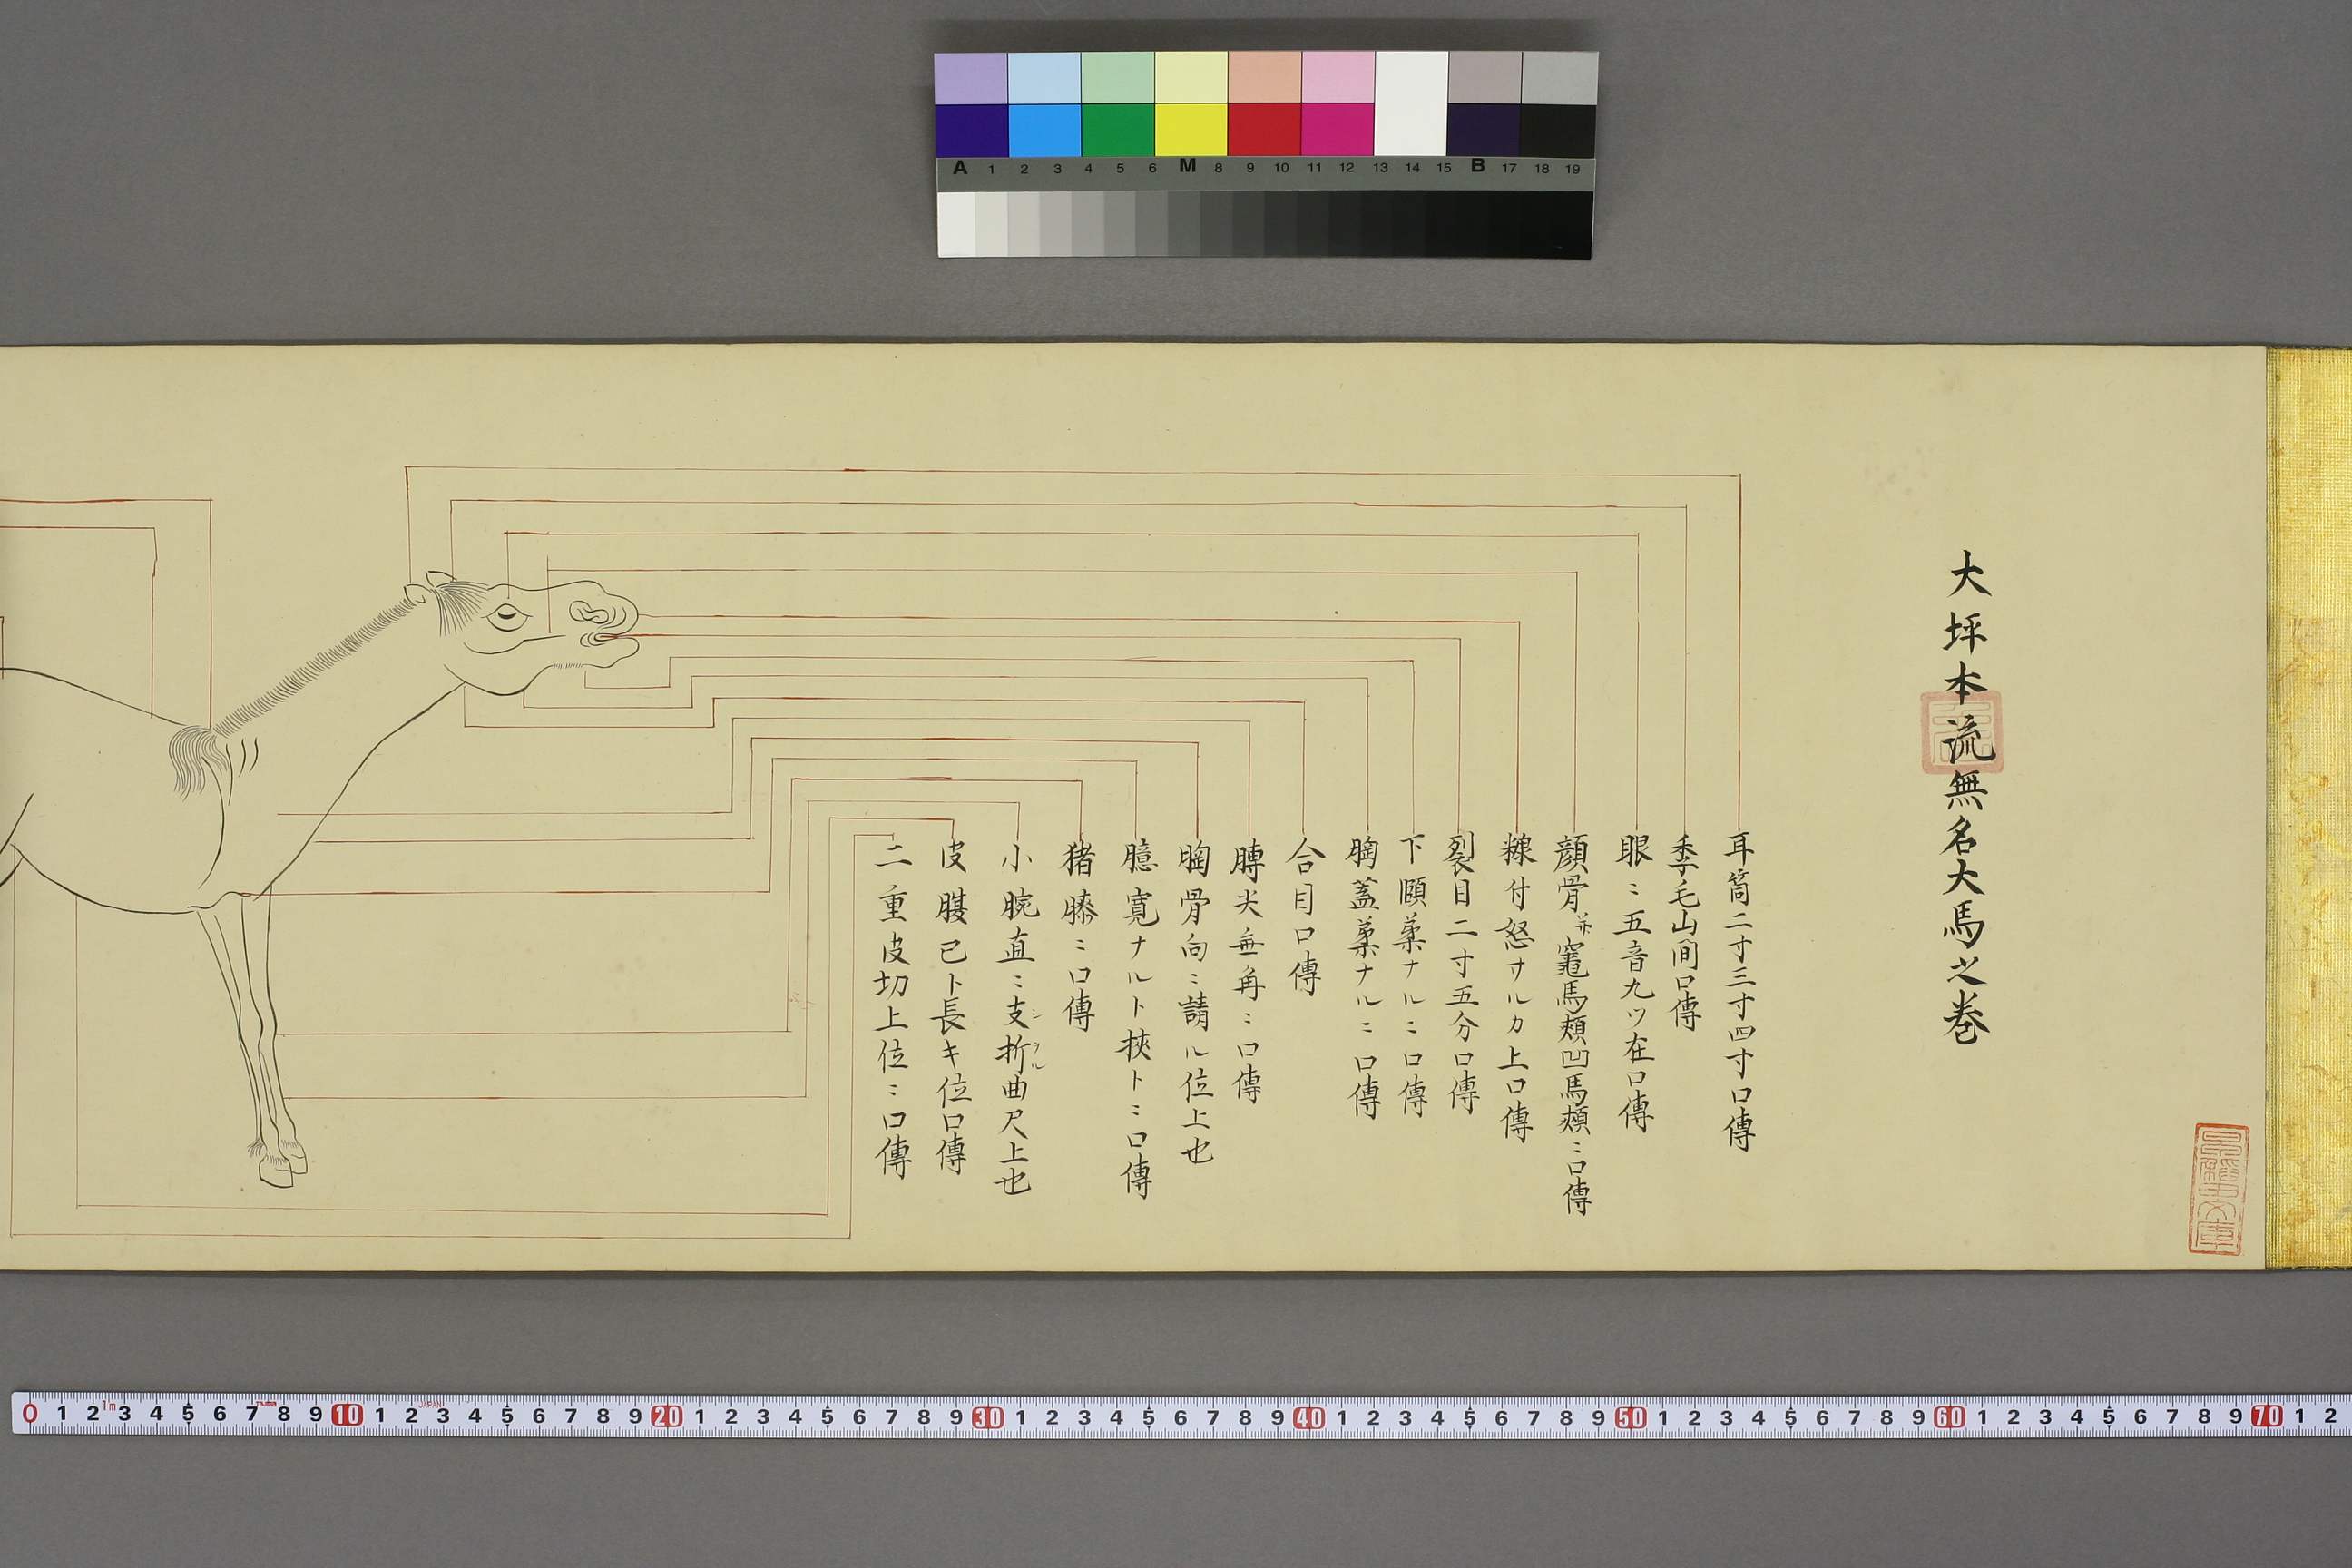 大坪本流無名大馬之巻
耳筒二寸三寸四寸口傳
季毛山間口傳
眼ニ五音九ツ在口傳
顔骨并竈馬頬凹馬頬ニ口傳
付怒サルカ上口傳
裂目二寸五分口傳
下頤藁ナルニ口傳
胸蓋藁ナルニ口傳
合目口傳
膞尖垂角ニ口傳
胸骨向ニ請ル位上也
臆寛ナルト挾トニ口傳
猪膝ニ口傳
小腕直ニ支折曲尺上也
シ クル
皮腹已ト長キ位口傳
二重皮切上位ニ口傳
文庫
A 1 2 3 4 5 6 M 8 9 10 11 12 13 14 15 B 17 18 19
0 1 2 3 4 5 6 7 8 9 10 1 2 3 4 5 6 7 8 9 20 1 2 3 4 5 6 7 8 9 30 1 2 3 4 5 6 7 8 9 40 1 2 3 4 5 6 7 8 9 50 1 2 3 4 5 6 7 8 9 60 1 2 3 4 5 6 7 8 9 70 1 2
1m JAPAN